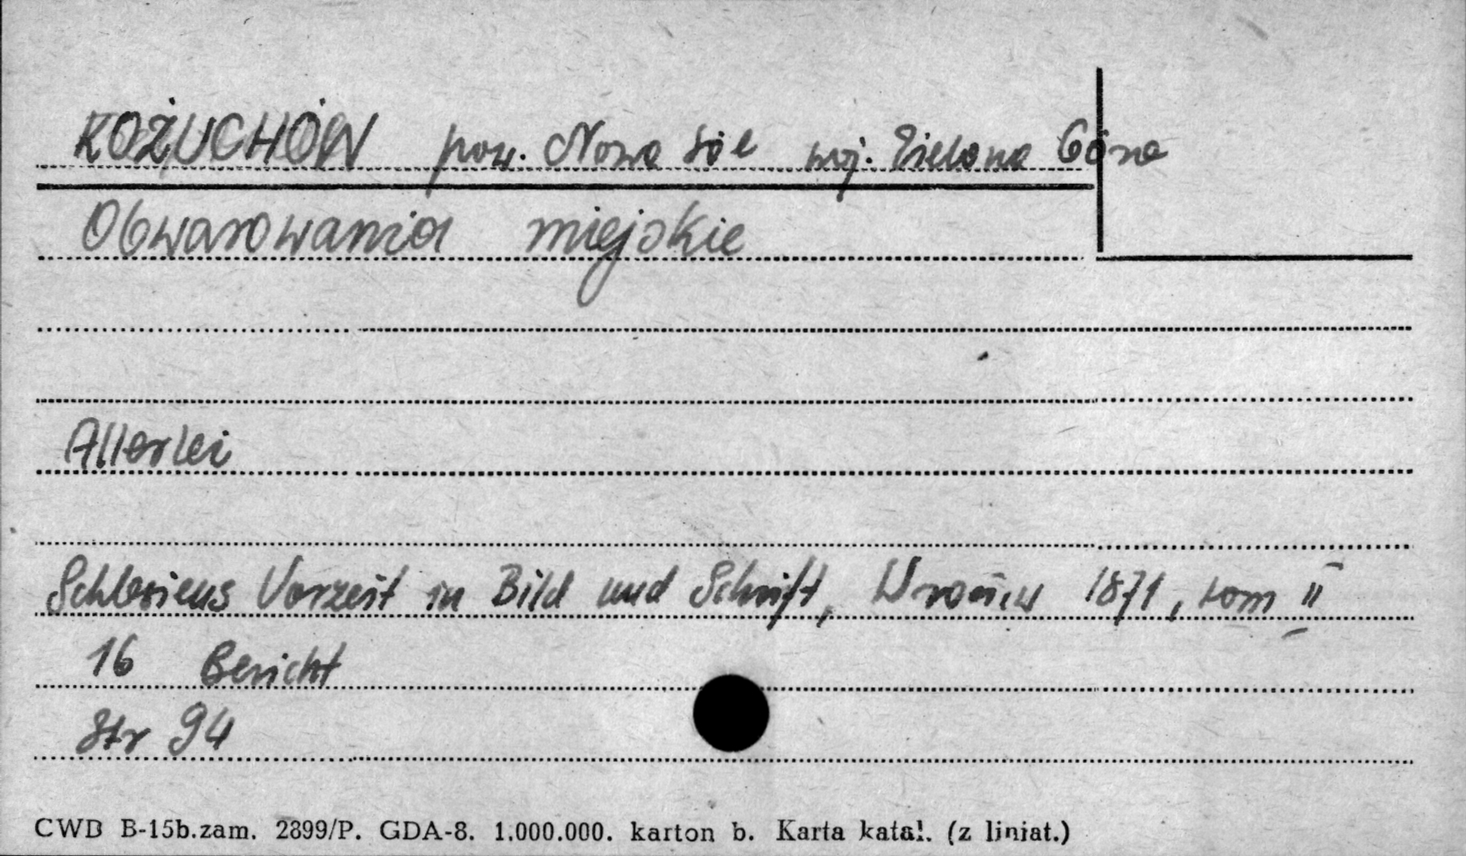 KOŻUCHÓW pow. Nowa Sól woj. Zielona Góra
Obwarowania miejskie
Allerlei
Schlesiens Vorzeit in Bild und Schrift, Wrocław 1871, tom II
16 Bericht
Str 94
CWD B-15b.zam. 2899/P. GDA-8. 1.000.000. karton b. Karta katal. (z liniat.)